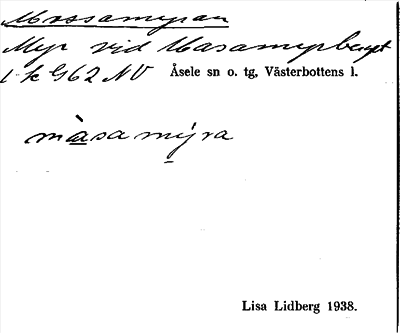 Massamyran
Myr vid Masamyrberget
i k G62 NV Åsele sn o. tg, Västerbottens l.
màsa mýra
Lisa Lidberg 1938.